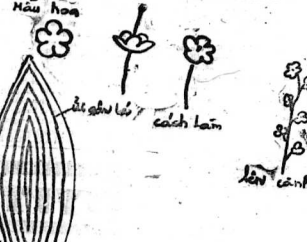 Mẫu hoa
gân lá
cách làm
lên cành